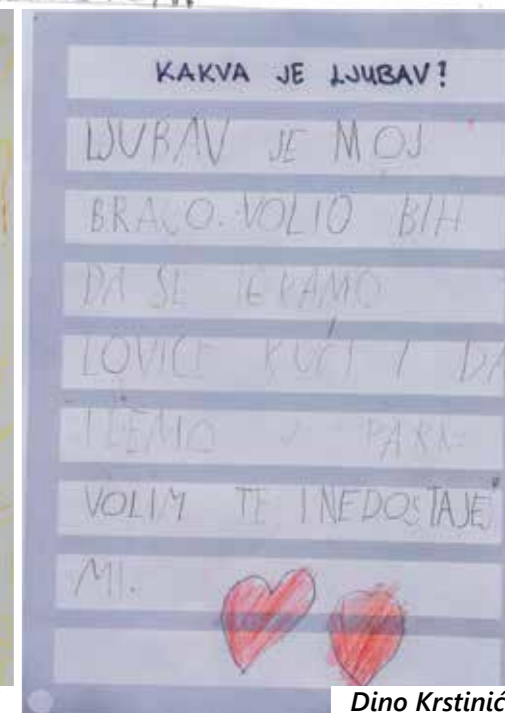 KAKVA JE LJUBAV?
LJUBAV JE MOJ
BRACO. VOLIO BIH
DA SE IGRAMO
LOVICE KUĆI I DA
IDEMO U PARK
VOLIM TE I NEDOSTAJEŠ
MI.
Dino Krstinić